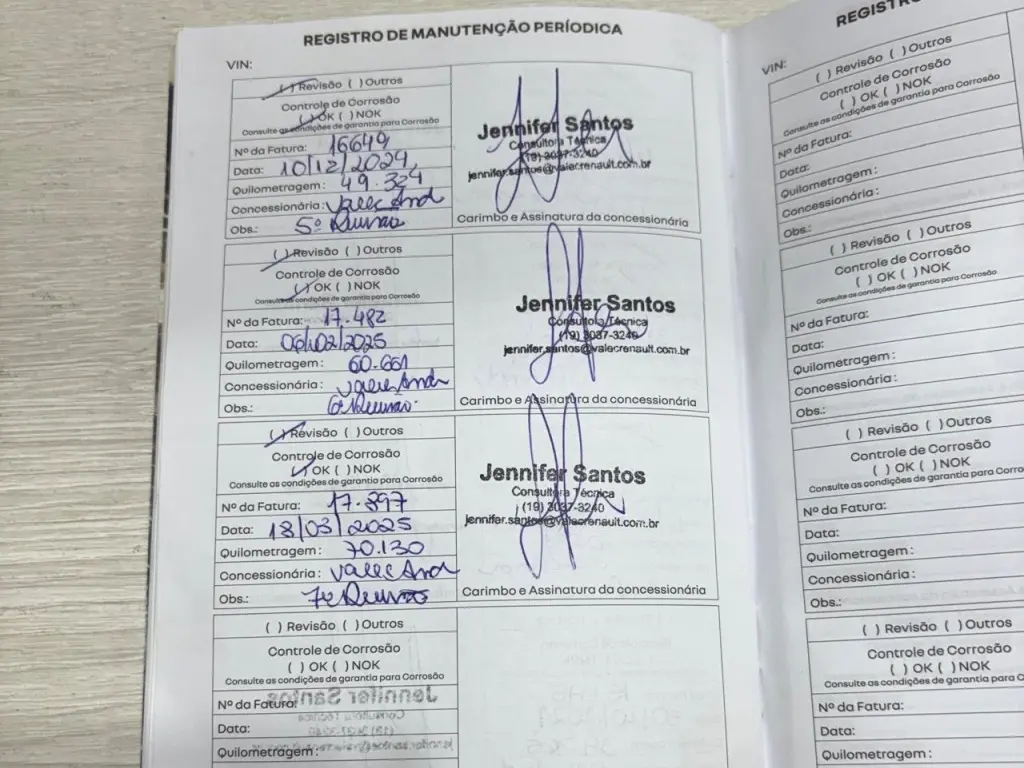 REGISTRO DE MANUTENÇÃO PERÍODICA
VIN:
( ) Revisão ( ) Outros
Controle de Corrosão
( ) OK ( ) NOK
Consulte as condições de garantia para Corrosão
Nº da Fatura: 16649
Data: 10/12/2024
Quilometragem: 49.324
Concessionária: Valec And
Obs.: 5º Revisão
Jennifer Santos
Consultora Técnica
(19) 3037-3240
jennifer.santos@valecrenault.com.br
Carimbo e Assinatura da concessionária
( ) Revisão ( ) Outros
Controle de Corrosão
( ) OK ( ) NOK
Consulte as condições de garantia para Corrosão
Nº da Fatura: 17.482
Data: 06/02/2025
Quilometragem: 60.661
Concessionária: Valec And
Obs.: 6º Revisão.
Jennifer Santos
Consultora Técnica
(19) 3037-3240
jennifer.santos@valecrenault.com.br
Carimbo e Assinatura da concessionária
( ) Revisão ( ) Outros
Controle de Corrosão
( ) OK ( ) NOK
Consulte as condições de garantia para Corrosão
Nº da Fatura: 17.897
Data: 13/03/2025
Quilometragem: 70.130
Concessionária: Valec And
Obs.: 7º Revisão
Jennifer Santos
Consultora Técnica
(19) 3037-3240
jennifer.santos@valecrenault.com.br
Carimbo e Assinatura da concessionária
( ) Revisão ( ) Outros
Controle de Corrosão
( ) OK ( ) NOK
Consulte as condições de garantia para Corrosão
Nº da Fatura:
Data:
Quilometragem:
VIN:
( ) Revisão ( ) Outros
Controle de Corrosão
( ) OK ( ) NOK
Consulte as condições de garantia para Corrosão
Nº da Fatura:
Data:
Quilometragem:
Concessionária:
Obs.:
( ) Revisão ( ) Outros
Controle de Corrosão
( ) OK ( ) NOK
Consulte as condições de garantia para Corrosão
Nº da Fatura:
Data:
Quilometragem:
Concessionária:
Obs.:
( ) Revisão ( ) Outros
Controle de Corrosão
( ) OK ( ) NOK
Consulte as condições de garantia para Corro
Nº da Fatura:
Data:
Quilometragem:
Concessionária:
Obs.:
( ) Revisão ( ) Outros
Controle de Corrosão
( ) OK ( ) NOK
Consulte as condições de garantia para C
Nº da Fatura:
Data:
Quilometragem: